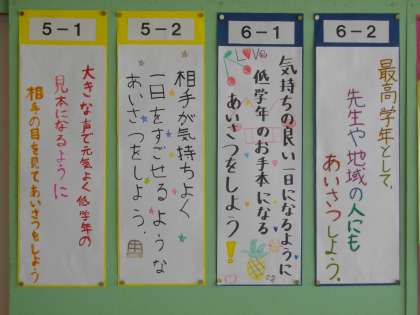 5-1
大きな声で元気よく低学年の
見本になるように
相手の目を見てあいさつをしよう
5-2
相手が気持ちよく
一日をすごせるような
あいさつをしよう.
6-1
LOVE
気持ちの良い一日になるように
低学年のお手本になる
あいさつをしよう!
6-2
最高学年として、
先生や地域の人にも
あいさつしよう。